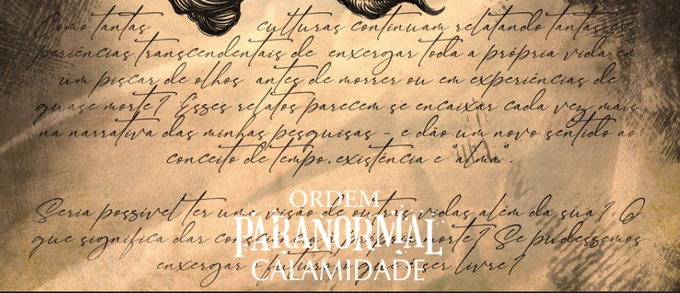 Como tantas culturas continuam relatando tantas ex
periências transcendentais de enxergar toda a própria vida em
um piscar de olhos antes de morrer ou em experiências de
quase morte? Esses relatos parecem se encaixar cada vez mais
na narrativa das minhas pesquisas - e dão um novo sentido ao
conceito de tempo, existência e "alma".
Seria possível ter uma visão de outras vidas além da sua? O
que significa dar morte? Se pudéssemos
enxergar o futuro ser livre?
ORDEM
PARANORMAL
CALAMIDADE